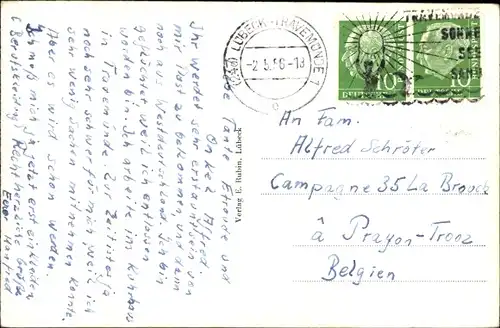 Liebe Tante Elfriede und
Onkel Alfred.
Ihr werdet sehr erstaunt sein von
mir Post zu bekommen, und dann
noch aus Westdeutschland. Ich bin
geflüchtet weil ich entlassen
worden bin. Ich arbeite im Kurhaus
in Travemünde. Zur Zeit ist es ja
noch sehr schwer für mich weil ich
sehr wenig Sachen mitnehmen konnte.
Aber es wird schon werden.
Ich muß mich ja jetzt erst einkleiden
(Berufskleidung). Recht herzliche Grüße
Euer Manfred
Verlag E. Rubin, Lübeck
LÜBECK-TRAVEMÜNDE 1
-2.5.56-18
c
10
DEUTSCHE
TRAVEMÜNDE
SONNE
SEE
SAND
An Fam.
Alfred Schröter
Campagne 35 La Brouck
à Prayon-Trooz
Belgien